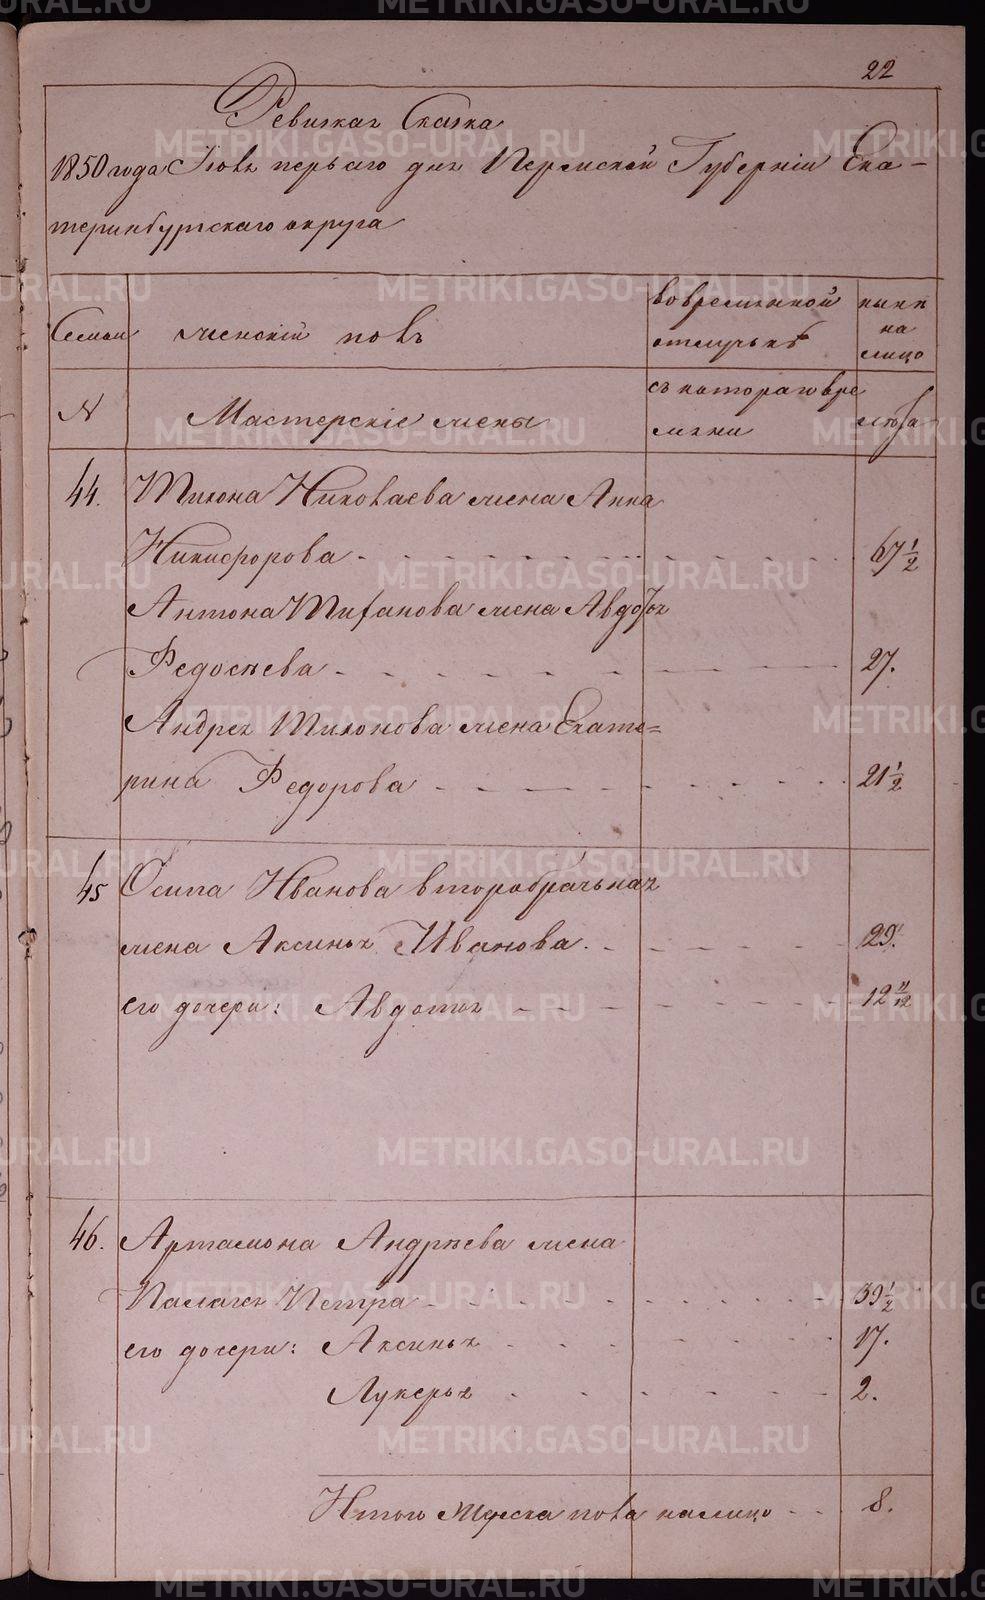 22
Ревизкая Сказка
1850 года Іюля первого дня Пермской Губерніи Ека-
теринбургскаго округа
Семьи
женскій полъ
во временной отлучькѣ
ныне на лицо
N
Мастерскіе жены
съ котораго вре
мени
лѣта
44.
Тихона Николаева жена Анна
Никифорова 67 1/2
Антона жена Авдотья
Федосѣева 27.
Андрея Тихонова жена Екате=
рина Федорова 21 1/2
45
Осипа Иванова второбрачьная
жена Аксинья Иванова 29.
его дочери: Авдотья 12 11/12
46.
Артамона Андрѣева жена
Палагея Петра 39 1/2
его дочери: Аксинья 17.
Лукерья 2.
Итого женска пола налицо 8.
METRIKI.GASO-URAL.RU